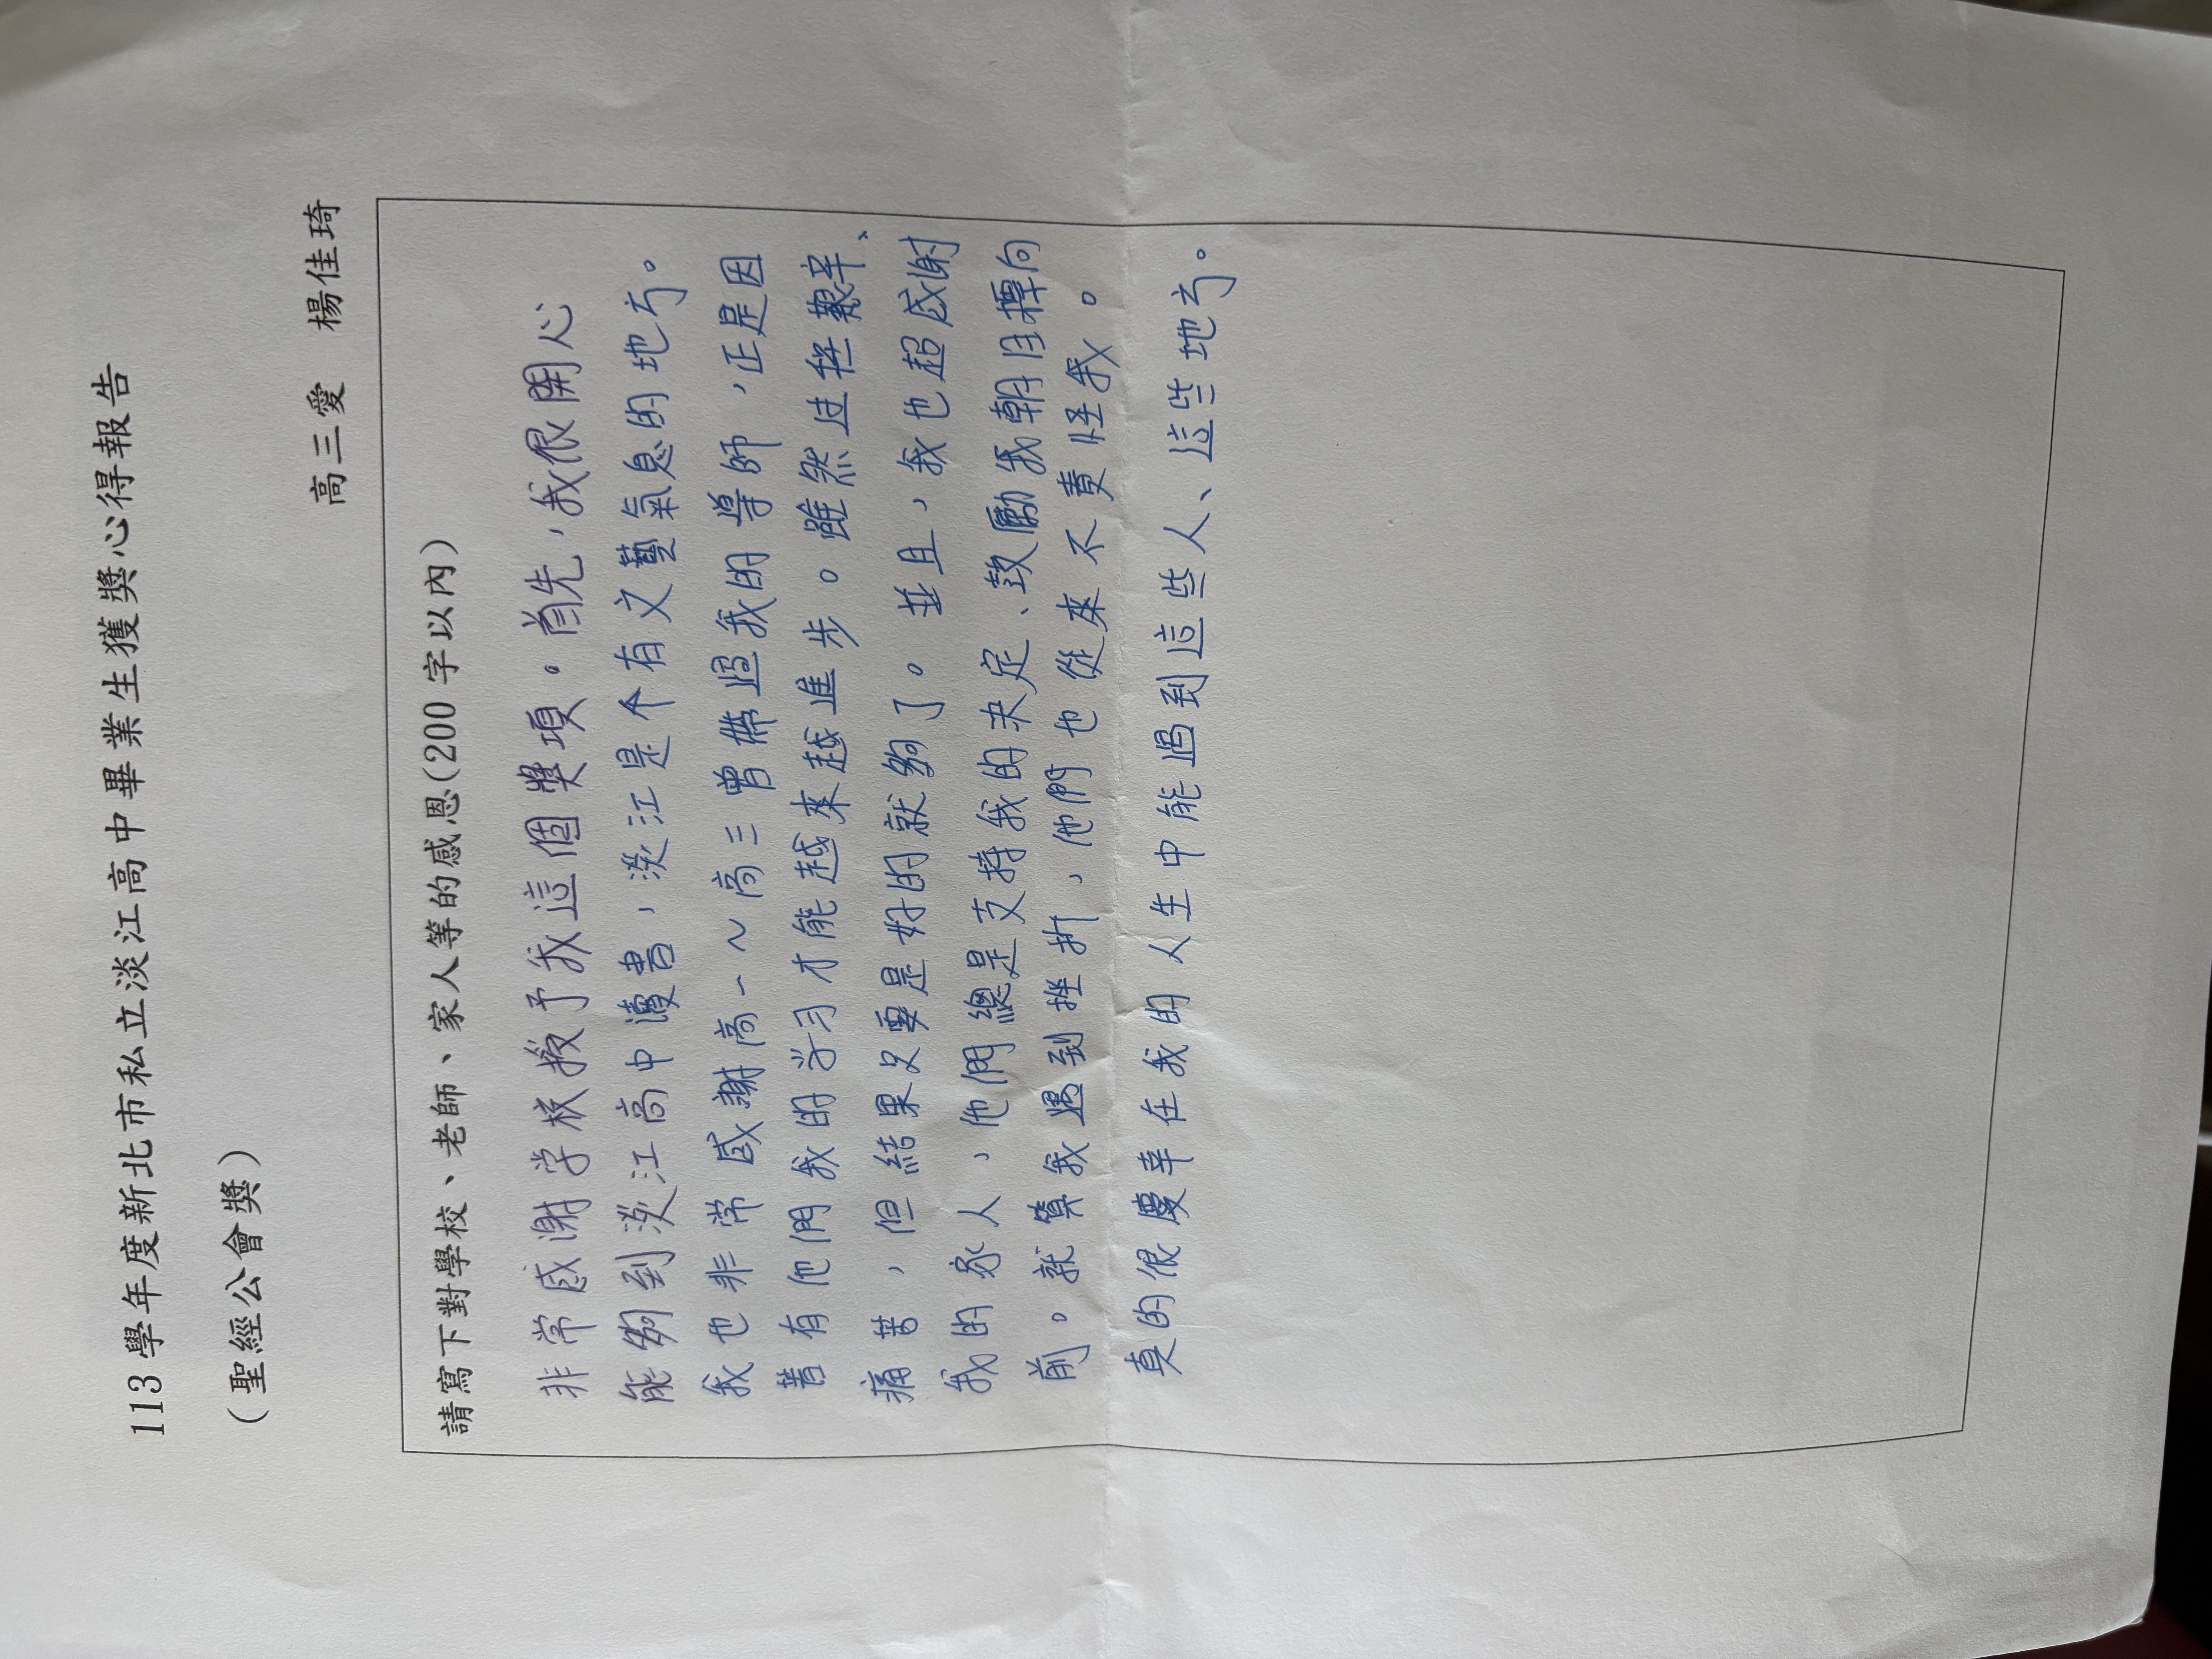 113學年度新北市私立淡江高中畢業生獲獎心得報告
（聖經公會獎）
高三愛 楊佳琦
請寫下對學校、老師、家人等的感恩(200字以內)
非常感謝学校授予我這個獎項。首先，我很開心
能夠到淡江高中讀書，淡江是个有文藝氣息的地方。
我也非常感謝高一～高三曾帶過我的導師，正是因
著有他們我的学习才能越來越進步。雖然过程艱辛、
痛苦，但結果只要是好的就夠了。並且，我也超感謝
我的家人，他們總是支持我的决定、鼓勵我朝目標向
前。就算我遇到挫折，他們也從來不責怪我。
真的很慶幸在我的人生中能遇到這些人、這些地方。